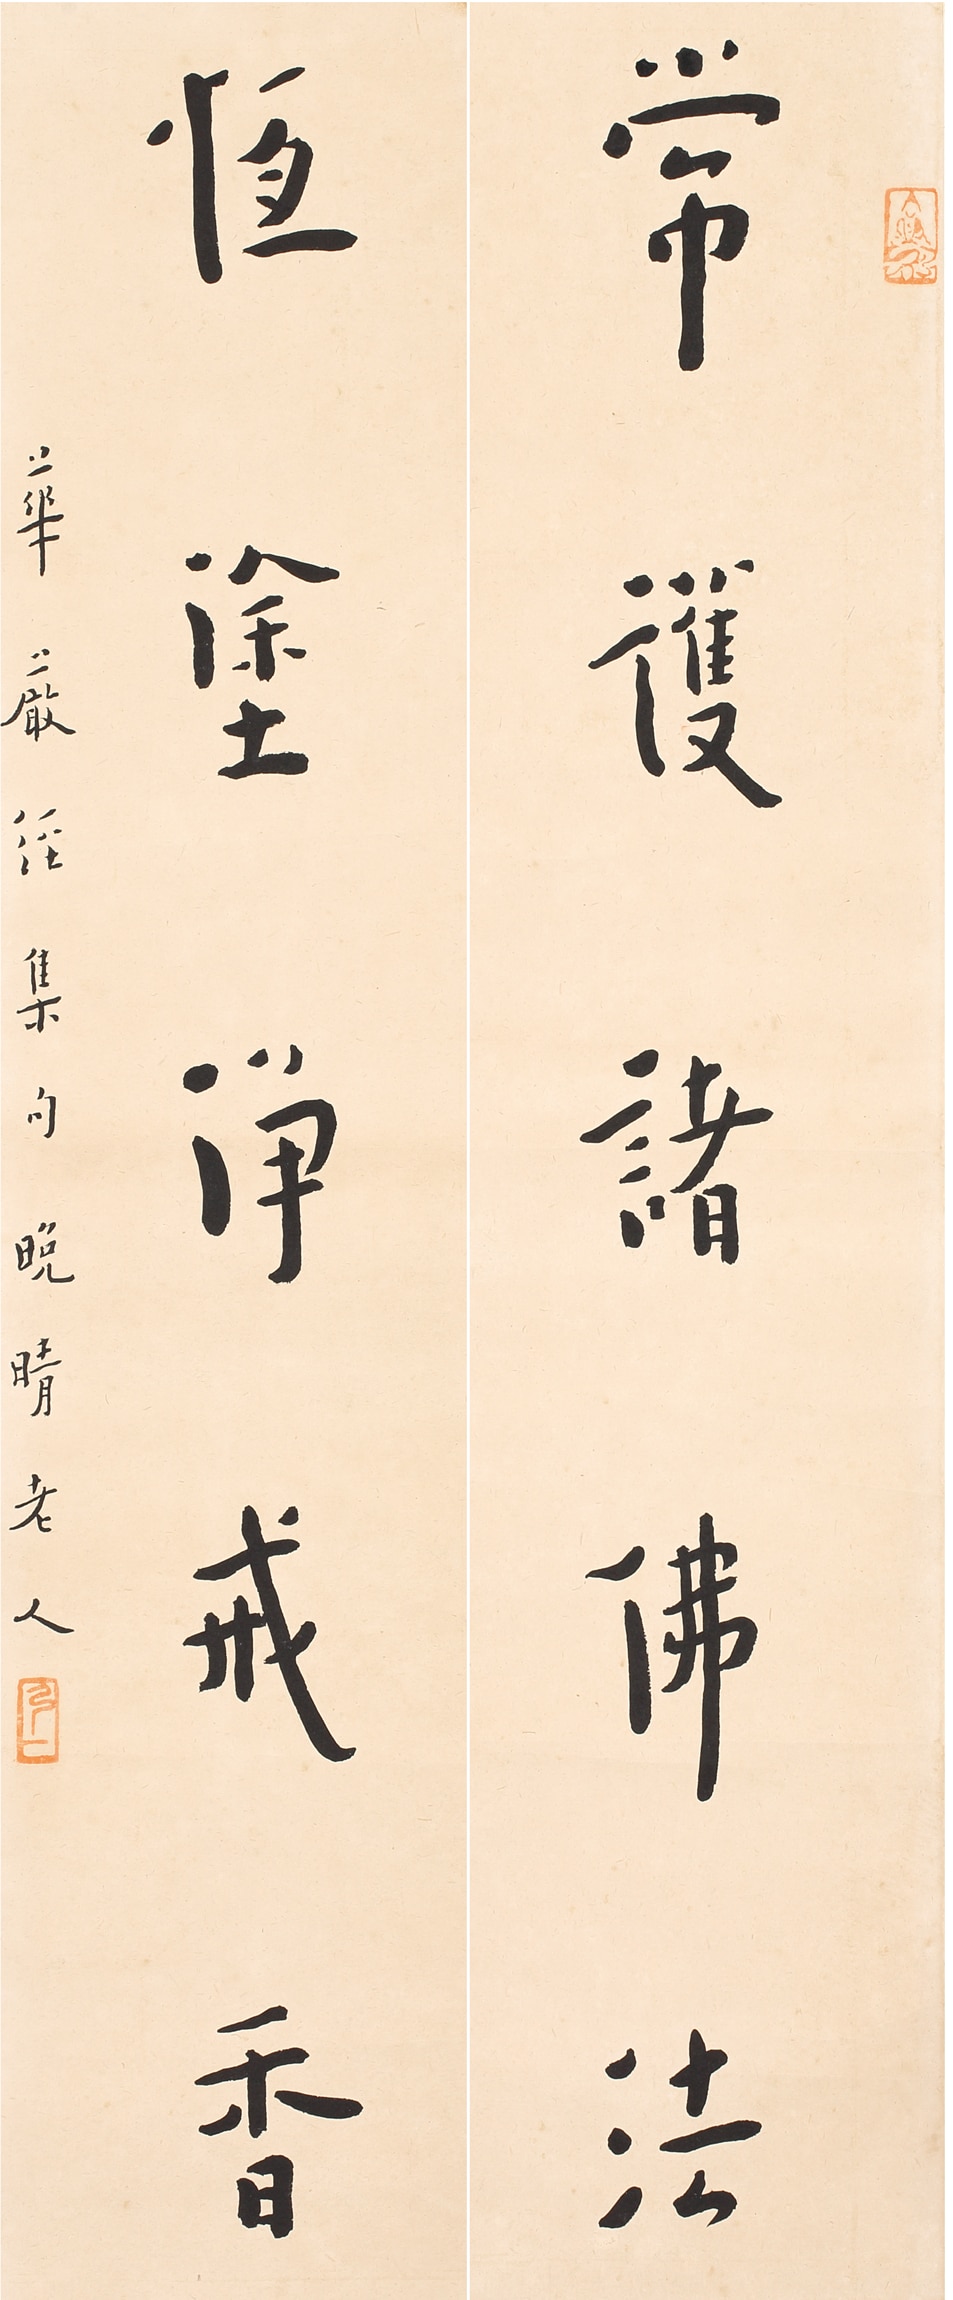 常護諸佛法
恆塗淨戒香
華嚴經集句晚晴老人
弘一